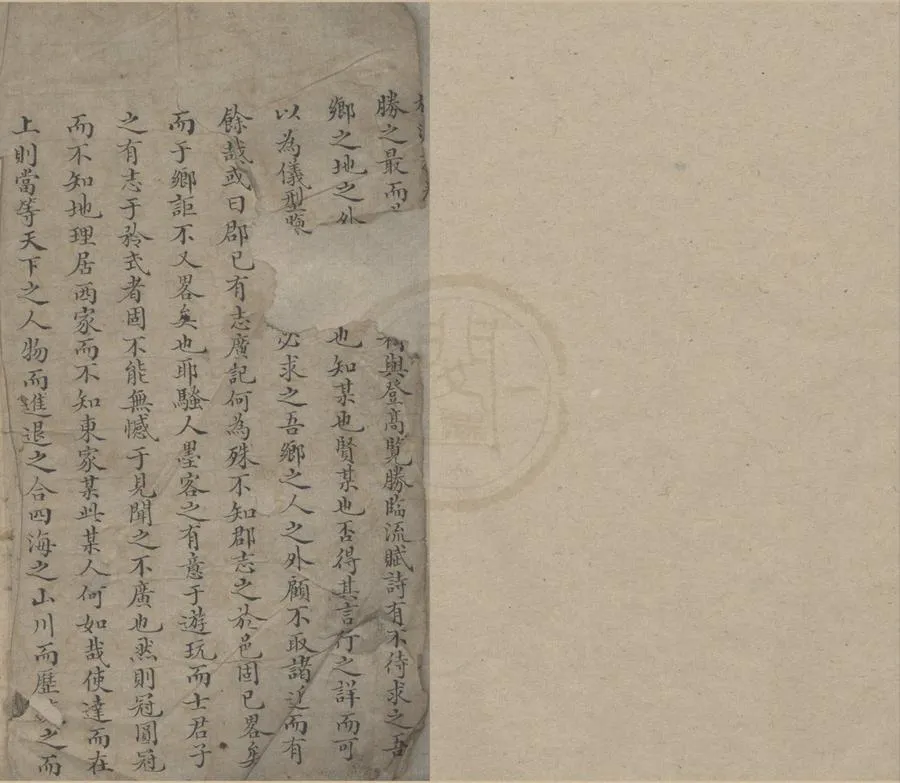 勝之最而興登高覽勝臨流賦詩有不待求之吾
鄉之地之外也知某也賢某也否得其言行之詳而可
以為儀型必求之吾鄉之人之外顧不取諸近而有
餘哉或曰郡已有志廣記何為殊不知郡志之於邑固已畧矣
而于鄉詎不又畧矣也耶騷人墨客之有意于遊玩而士君子
之有志于矜式者固不能無憾于見聞之不廣也然則冠圓冠
而不知地理居西家而不知東家某此某人何如哉使達而在
上則當等天下之人物而進退之合四海之山川而歷之而